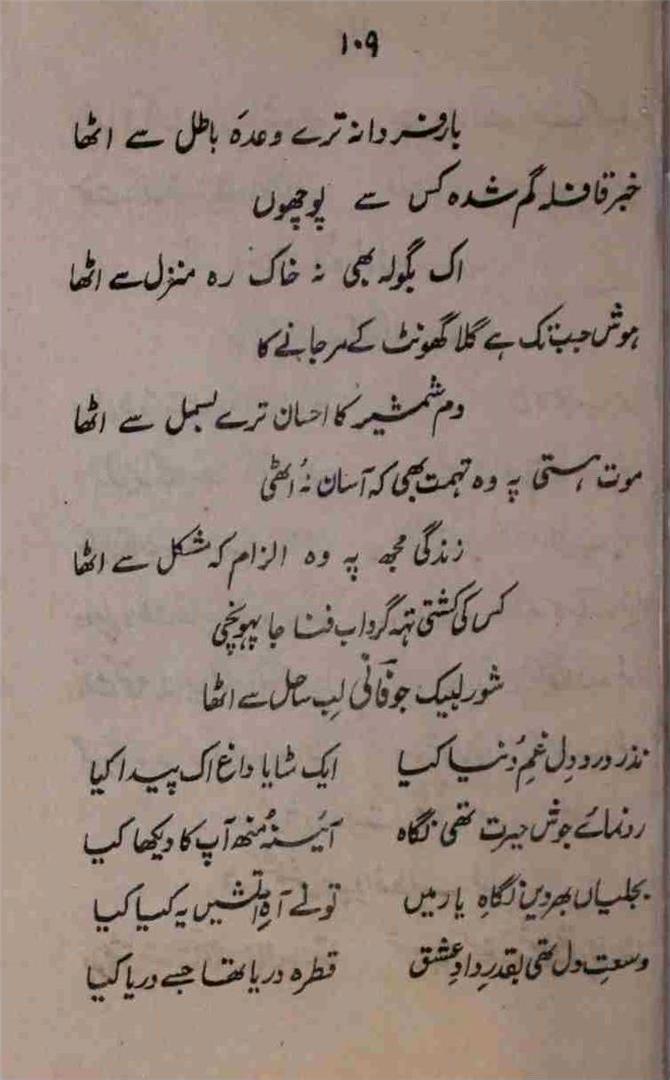 ۱۰۹
بار فردا نہ ترے وعدۂ باطل سے اٹھا
خبر قافلہ گم شدہ کس سے پوچھوں
اک بگولہ بھی نہ خاک رہ منزل سے اٹھا
ہوش جب تک ہے گلا گھونٹ کے مر جانے کا
دم شمشیر کا احسان ترے بسمل سے اٹھا
موت ہستی پہ وہ تہمت بھی کہ آسان نہ اٹھی
زندگی مجھ پہ وہ الزام کہ مشکل سے اٹھا
کس کی کشتی تہہ گرداب فنا جا پہونچی
شور لبیک جو فانیؔ لب ساحل سے اٹھا
نذر درد دل غمِ دنیا کیا ایک مٹایا داغ اک پیدا کیا
رونمائے جوش حیرت تھی نگاہ آئینہ منھ آپ کا دیکھا کیا
بجلیاں بھر دیں نگاہِ یار میں تو نے آہِ آتشیں یہ کیا کیا
وسعتِ دل تھی بقدرِ دادِ عشق قطرہ دریا تھا جسے دریا کیا